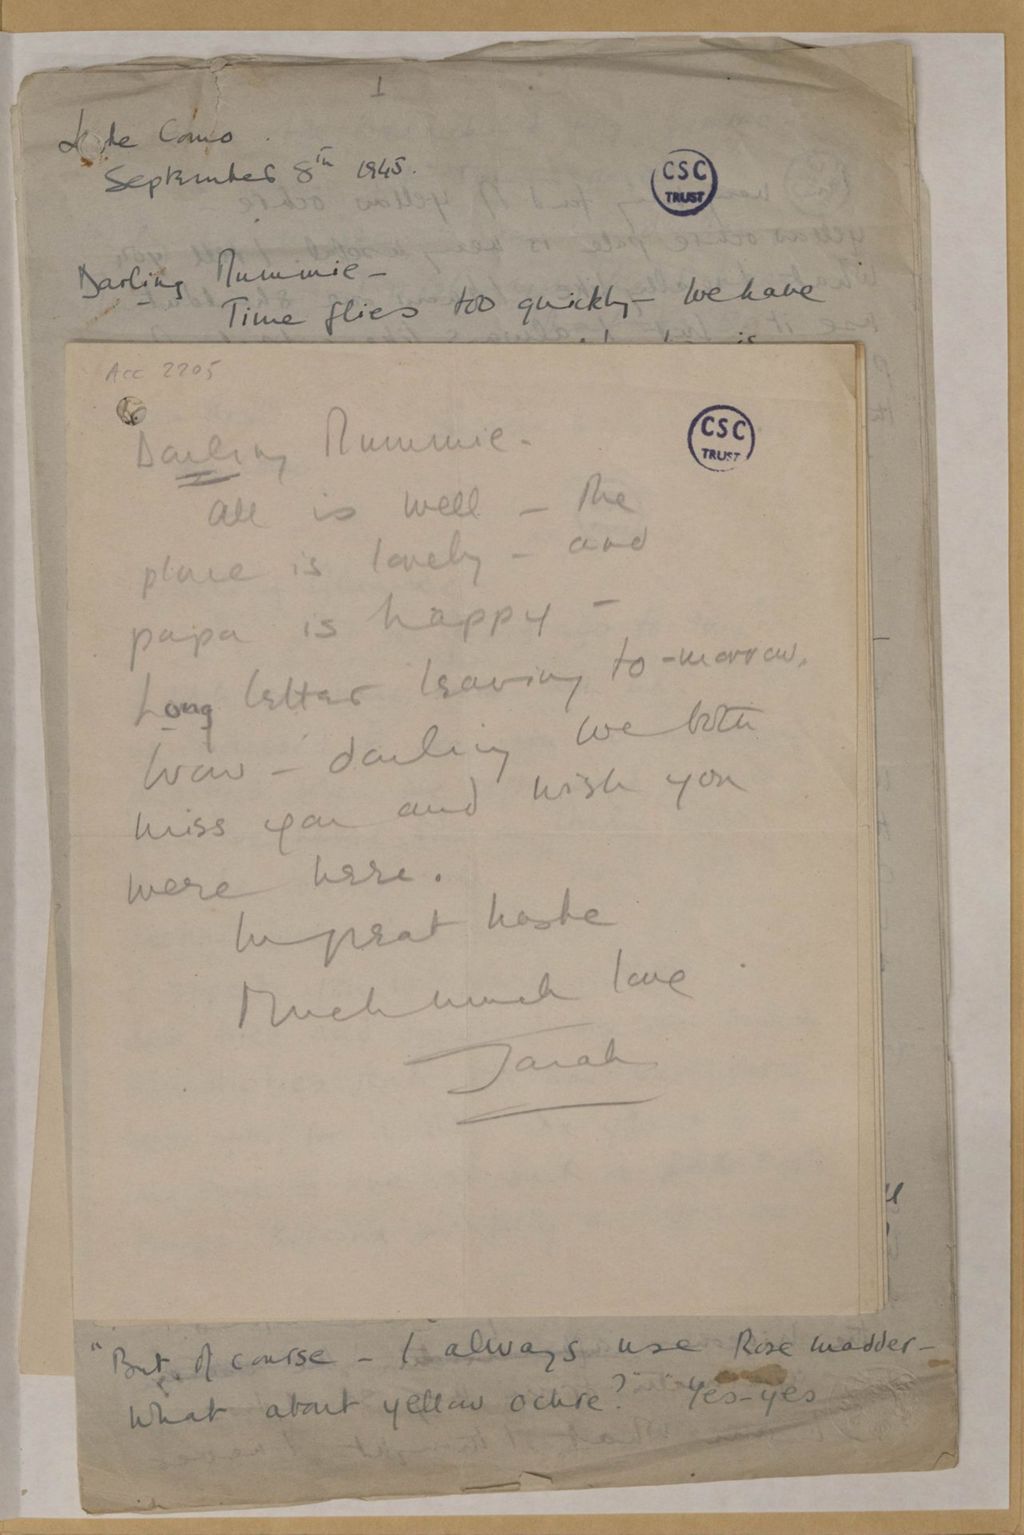 1
Lake Como.
September 8th 1945.
CSC
TRUST
Darling Mummie -
Time flies too quickly - We have
is
Acc 2205
CSC
TRUST
Darling Mummie -
All is well - The
place is lovely - and
papa is happy -
Long letter leaving to-morrow.
Wow - darling we both
miss you and wish you
were here.
In great haste
Much much love
Sarah
"But of course - I always use Rose madder -
What about yellow ochre?" "Yes-yes